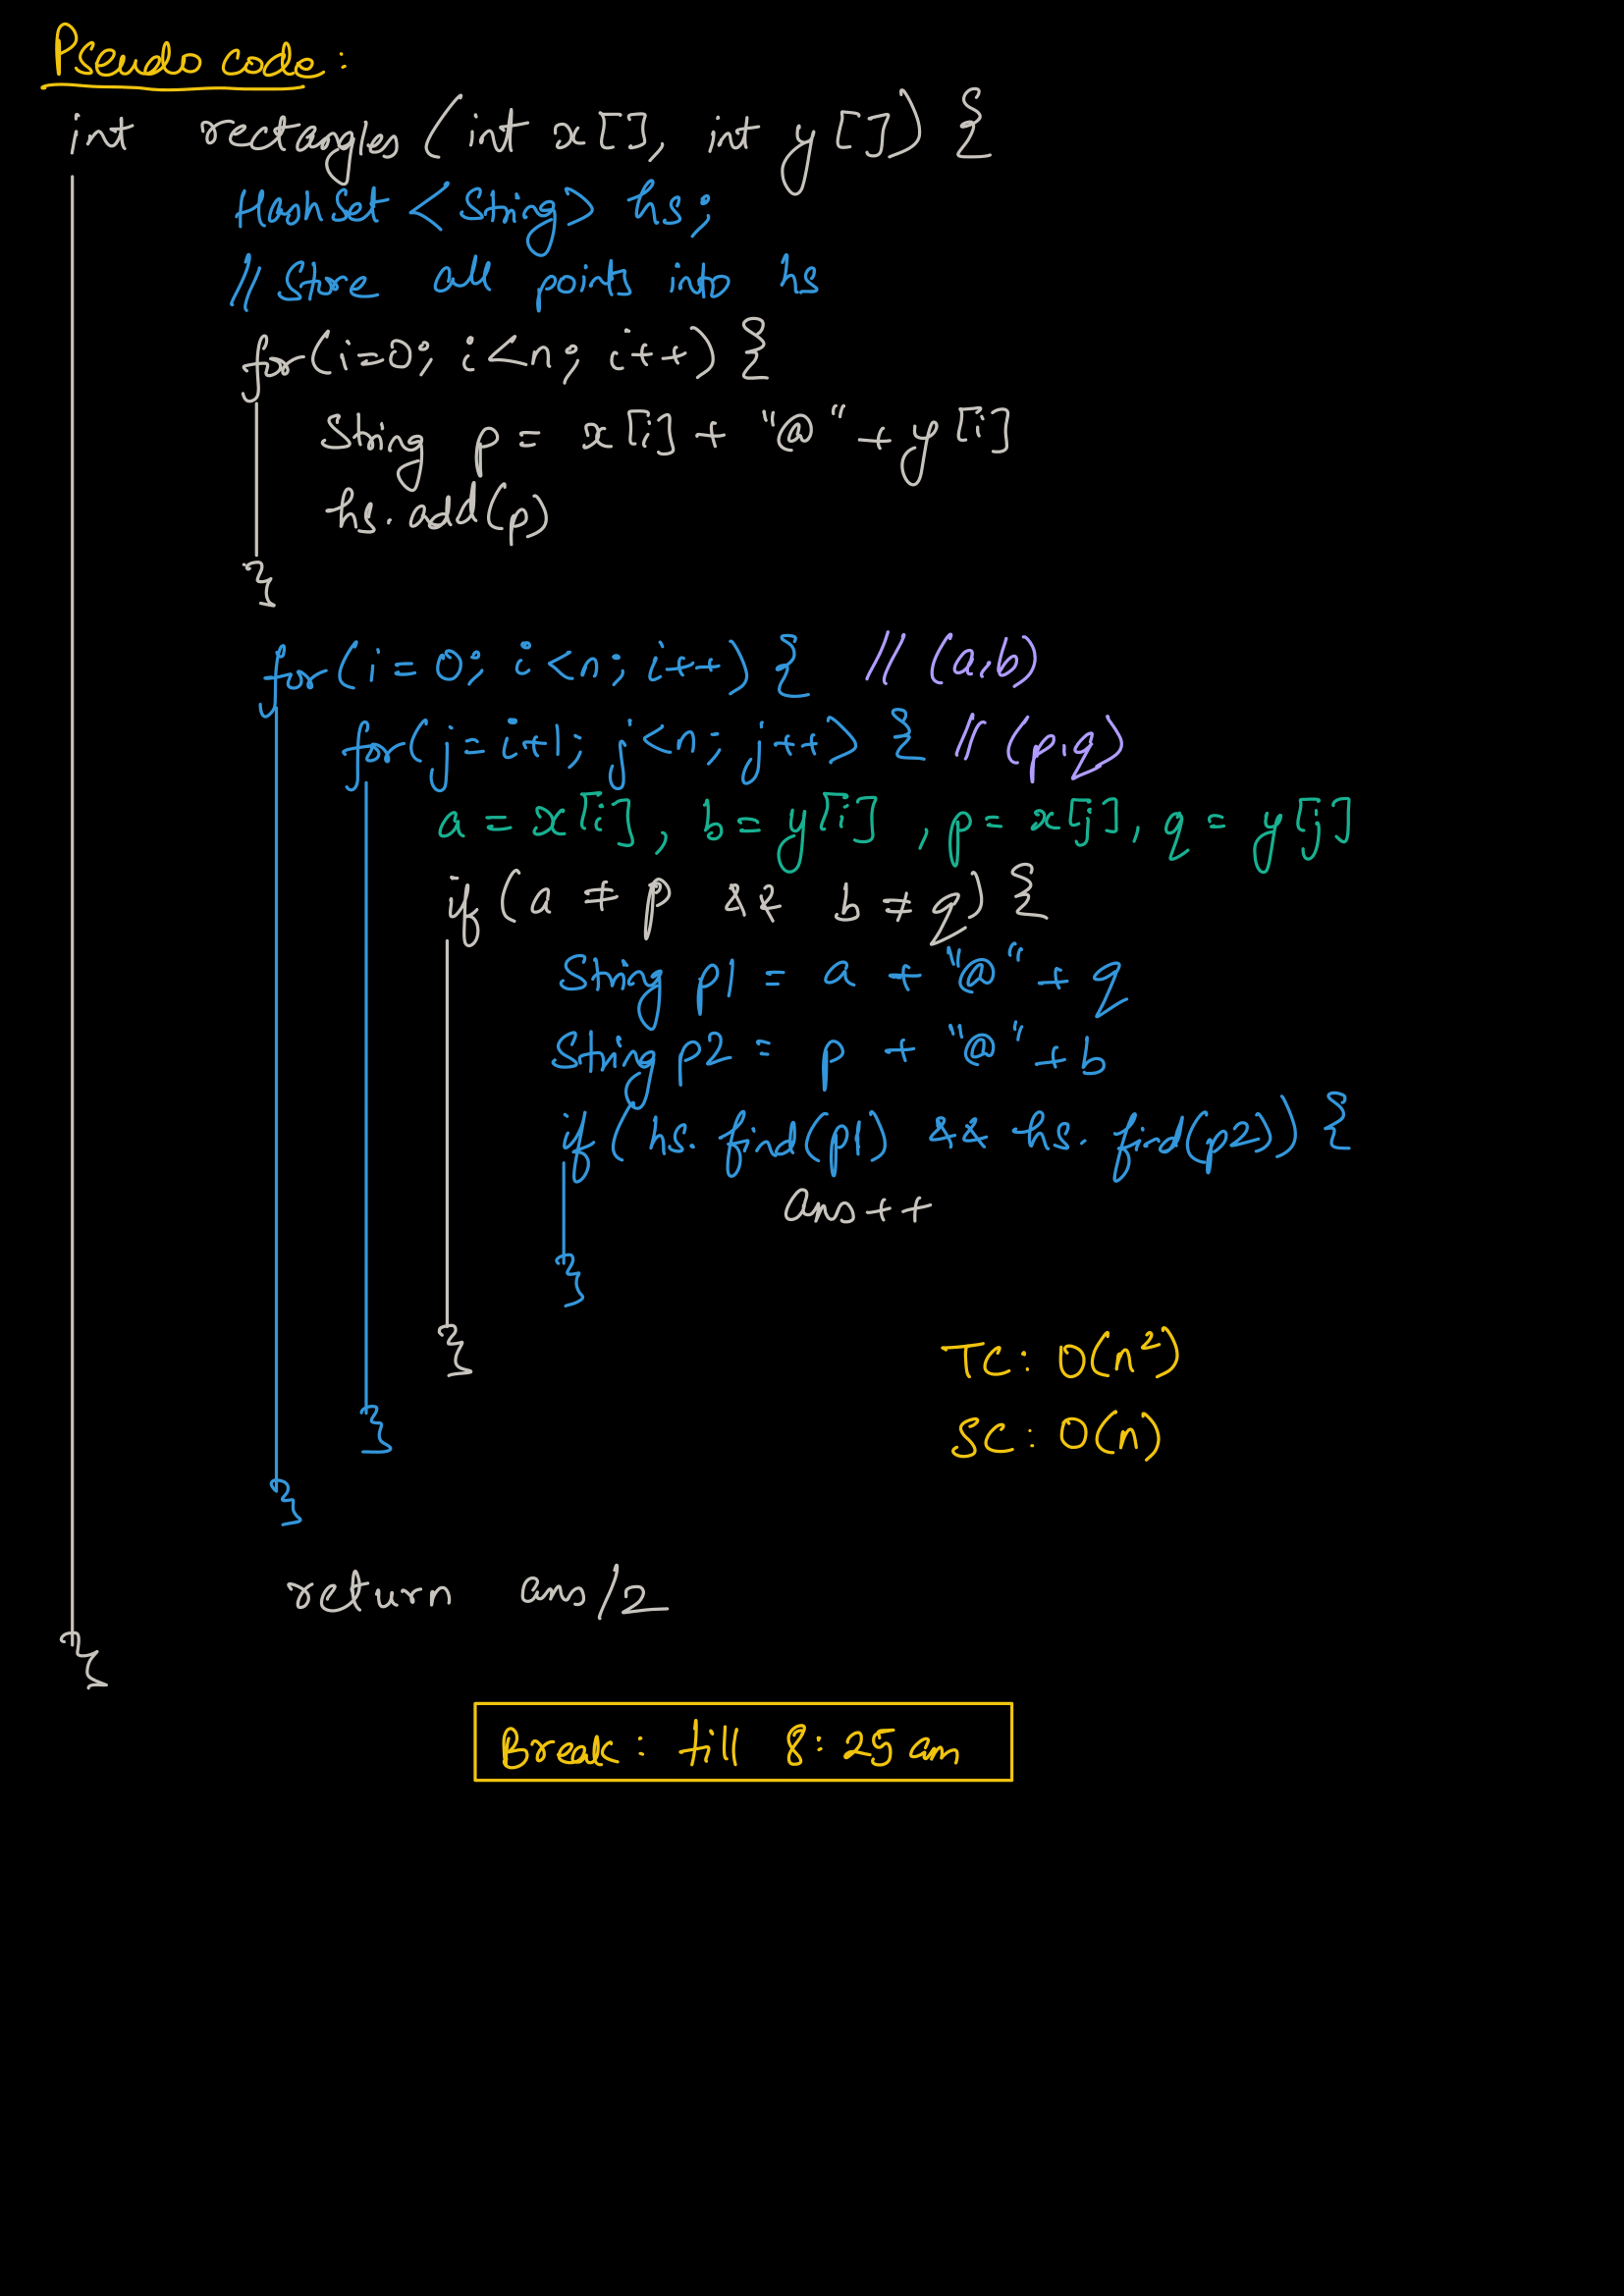 Pseudo code:
int rectangles (int x[], int y[]) {
HashSet <String> hs;
// Store all points into hs
for(i=0; i<n; i++) {
String p = x[i] + "@" + y[i]
hs.add(p)
}
for(i = 0; i<n; i++) { // (a,b)
for(j = i+1; j<n; j++) { // (p,q)
a = x[i], b = y[i], p = x[j], q = y[j]
if (a ≠ p && b ≠ q) {
String p1 = a + "@" + q
String p2 = p + "@" + b
if (hs.find(p1) && hs.find(p2)) {
ans++
}
}
TC: O(n²)
}
SC: O(n)
}
return ans/2
}
Break: till 8:25 am